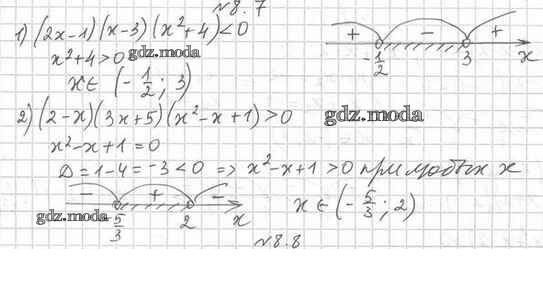 №8.7
1) (2x-1)(x-3)(x²+4)<0
x²+4>0 gdz.moda
+ - + -1/2 3 x
x∈ (-1/2; 3)
2) (2-x)(3x+5)(x²-x+1)>0
gdz.moda
x²-x+1=0
D=1-4=-3<0 => x²-x+1>0 при любых x
- + - -5/3 2 x
gdz.moda
x∈(-5/3; 2)
№8.8